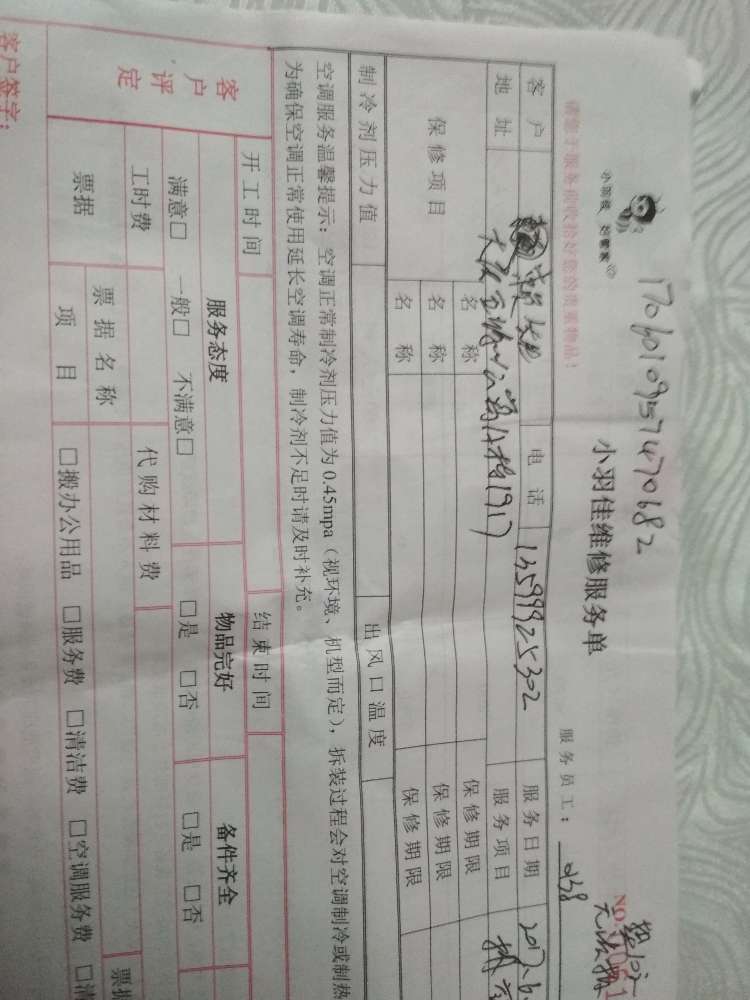 小羽佳 好管家
1706010957470682
小羽佳维修服务单
NO
服务员工: 0138
请您于服务前收拾好您的贵重物品!
客户 电话 13599925302 服务日期 2017.6
地址 服务项目
保修项目 名称 保修期限
名称 保修期限
名称 保修期限
制冷剂压力值 出风口温度
空调服务温馨提示: 空调正常制冷剂压力值为0.45mpa (视环境、机型而定), 拆装过程会对空调制冷或制热
为确保空调正常使用延长空调寿命, 制冷剂不足时请及时补充。
开工时间 结束时间
客户评定 服务态度 物品完好 备件齐全
满意□ 一般□ 不满意□ □是 □否 □是 □否
工时费 代购材料费
票据 票据名称
项目 □搬办公用品 □服务费 □清洁费 □空调服务费 □清
客户签字: